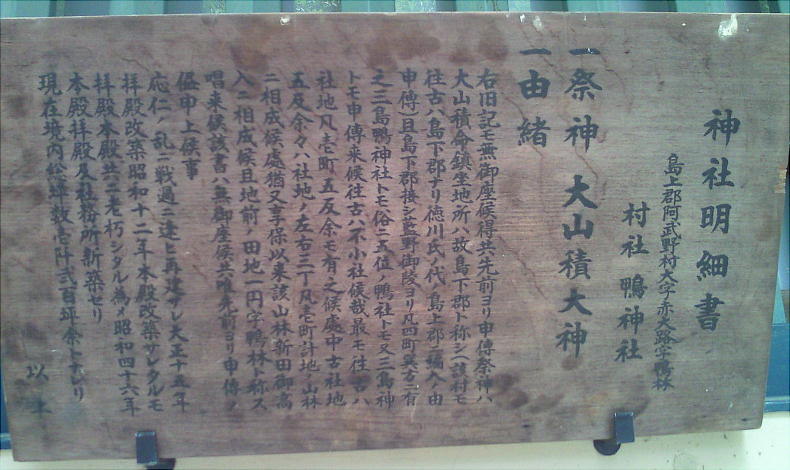 神社明細書
島上郡阿武野村大字赤大路字鴨林
村社 鴨神社
一祭神 大山積大神
一由緒
右旧記モ無御座候得共先前ヨリ申傳祭神ハ
大山積命鎮坐地所ハ故島下郡ト称シ(該村モ
往古ハ島下郡ナリ徳川氏ノ代ハ島上郡ニ編入ノ由
申傳)且島下郡接シ藍野御陵ヨリ凡四町巽方ニ有
之三島鴨神社トモ俗ニ五位ノ鴨社トモ又三島神
トモ申傳来候往古ハ不小社候哉最モ往古ハ
社地凡壱町五反余モ有之候處中古社地
五反余々ハ社地ノ左右三丁凡壱町計地ハ山林
ニ相成候處猶又享保以来該山林新田御高
入ニ相成候且地前ノ田地一円字鴨林ト称ス
唱来候該書ハ無御座候共唯先前ヨリ申傳ノ
儘申上候事
応仁ノ乱ニ戦過ニ逢ヒ再建サレ大正十五年
拝殿改築昭和十二年本殿改築サレタルモ
拝殿本殿共ニ老朽シタル為メ昭和四十六年
本殿拝殿及社務所新築セリ
現在境内総坪数壱阡弐百坪余トナレリ
以上